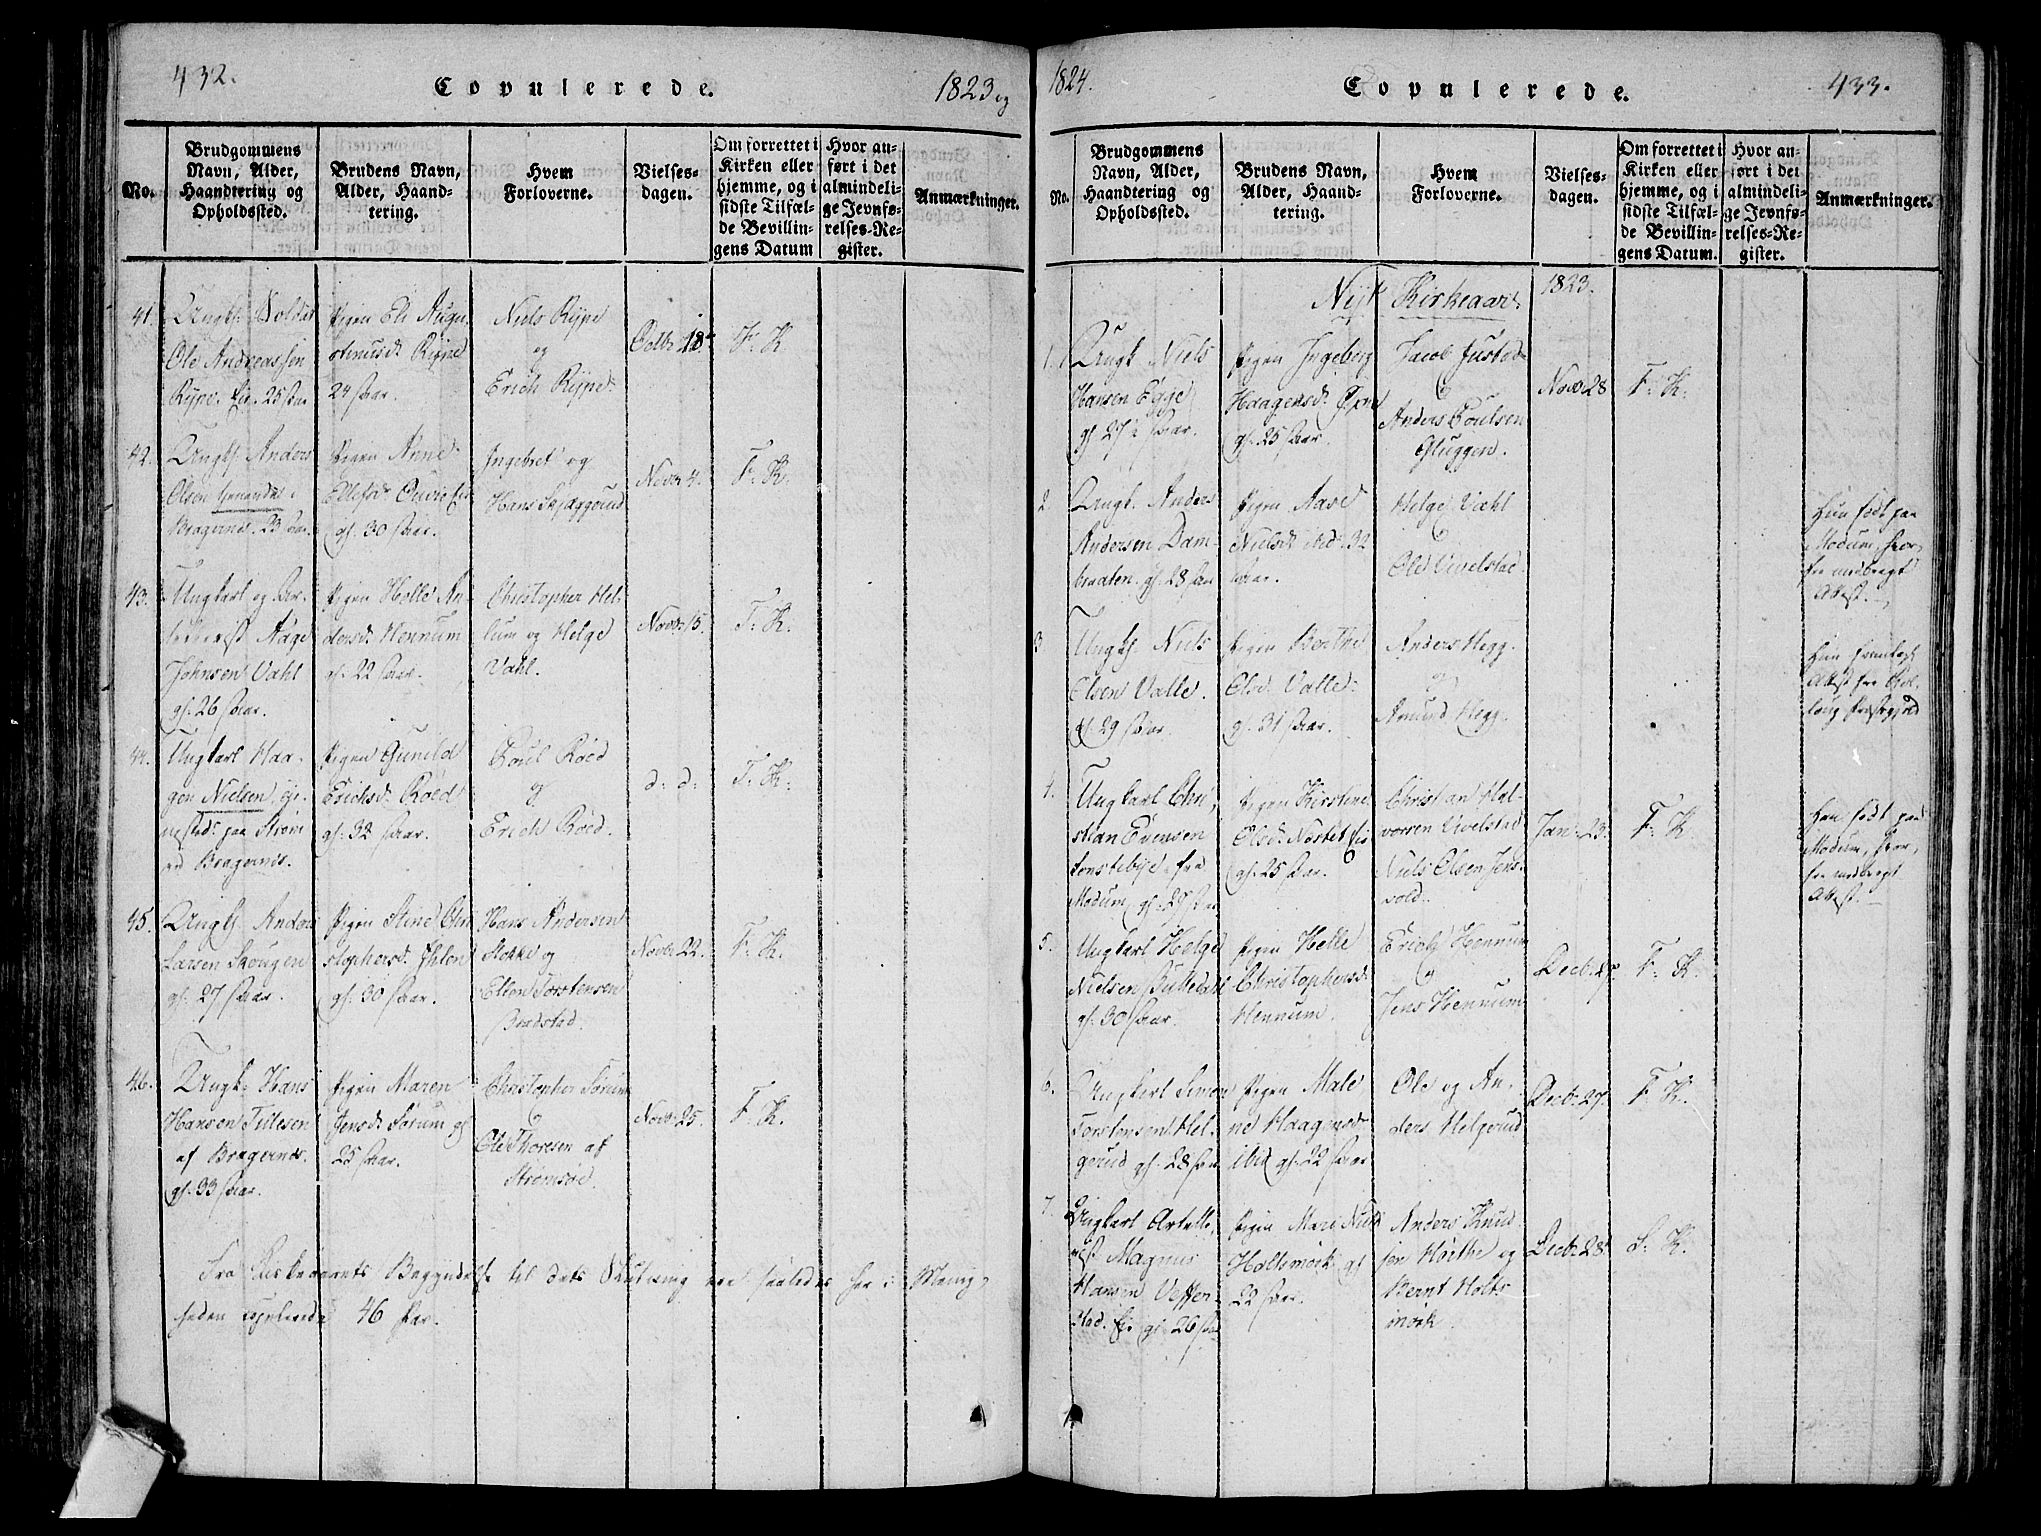 432.
Copulerede.
1823 og
No.
Brudgommens
Navn, Alder,
Haandtering og
Opholdssted.
Brudens Navn,
Alder, Haand-
tering.
Hvem
Forloverne.
Vielses-
dagen.
Om forrettet i
Kirken eller
hjemme, og i
sidste Tilfæl-
de Bevillin-
gens Datum
Hvor an-
ført i det
almindeli-
ge Jevnfø-
relses-Re-
gister.
Anmærkninger.
41.
Ungk: Soldat
Ole Andreassen
Rype. Eir. 25 Aar
Pigen Eli Augu-
stinusd: Rype
24 Aar.
Niels Rype
og
Erich Rype
Octb: 18
F: K.
42.
Ungk: Anders
Olsen i
Bragernes. 23 Aar.
Pigen Anne
Ellefsd:
gl. 30 Aar.
Ingebret og
Hans Skjæggerud
Novb: 4.
F: K.
43.
Ungkarl og
Aage
Johnsen Vahl
gl. 26 Aar.
Pigen Helle An-
dersd: Hennum
gl. 22 Aar.
Christopher Hel-
lum og Helge
Vahl.
Novb: 15.
F: K.
44.
Ungkarl Haa-
gen Nielsen,
paa Strøm
Bragernes.
Pigen Gunild
Erichsd: Röed
gl. 32 Aar.
Poul Röed
og
Erich Röed.
d: d:
F: K.
45.
Ungk: Anders
Larsen Skougen
gl. 27 Aar.
Pigen Stine Chri-
stophersd: Ihlen
gl. 30 Aar.
Hans Andersen
Stokke og
Ellen Torstensen
Bradstad.
Novb: 22.
F: K.
46.
Ungk: Hans
Hansen Tilesen
af Bragernes.
gl. 33 Aar.
Pigen Maren
Jensd: Sørum gl
25 Aar.
Christopher Sørum
og
Ole Thoresen af
Strømsøe.
Novb: 25.
F: K.
Fra Kirkeaarets Begyndelse til dets Slutning ere saaledes her i Menig-
heden copulerede 46 Par.
1824.
Copulerede.
433.
No.
Brudgommens
Navn, Alder,
Haandtering og
Opholdssted.
Brudens Navn,
Alder, Haand-
tering.
Hvem
Forloverne.
Vielses-
dagen.
Om forrettet i
Kirken eller
hjemme, og i
sidste Tilfæl-
de Bevillin-
gens Datum.
Hvor an-
ført i det
almindeli-
ge Jevnfø-
relses-Re-
gister.
Anmærkninger.
Nyt Kirkeaar 1823.
1.
Ungk Niels
Hansen Egge
gl. 27½ Aar.
Pigen Ingeborg
Haagensd:
gl. 25 Aar.
Jacob Justad
og
Anders Poulsen
Gluggen.
Novb: 28
F: K.
2.
Ungk. Anders
Andersen Dam-
braaten. gl. 28 Aar
Pigen Aase
Nielsd: ibid: 32
Aar.
Helge Vahl
og
Ole Vivelstad.
Hun født paa
Modum, hvor-
fra medbragt
Attest.
3
Ungk: Niels
Olsen Valle.
gl 29 Aar.
Pigen Berthe
Olsd: Valle.
gl. 31 Aar.
Anders Hegg.
og
Amund Hegg.
Hun fremlagt
Attest fra
Præstegjeld
4.
Ungkarl Chri-
stian Evensen
fra
Modum, gl. 27 Aar
Pigen Kirstine
Olsd:
gl. 25 Aar.
Christian Hal-
vorsen Vivelstad
og
Niels Olsen Jens-
vold.
Jan: 23.
F: K
Han født paa
Modum, hvor-
fra medbragt
Attest.
5.
Ungkarl Helge
Nielsen
gl. 30 Aar.
Pigen Helle
Christophersd:
Hennum.
Erich Hennum
og
Jens Hennum
Decb: 27
F: K.
6.
Ungkarl Simon
Torstensen Hel-
gerud gl. 28 Aar
Pigen Male
ne Haagensd:
ibid gl. 22 Aar
Ole og An-
ders Helgerud
Decb: 27.
F: K.
7.
Ungkarl Artille-
rist Magnus
Hansen
Eir gl. 26 Aar
Pigen Mari Nielsd
Holtsmörk gl
22 Aar.
Anders Knud-
sen Hörthe og
Bernt Holts
mörk.
Decb: 28.
F. K.